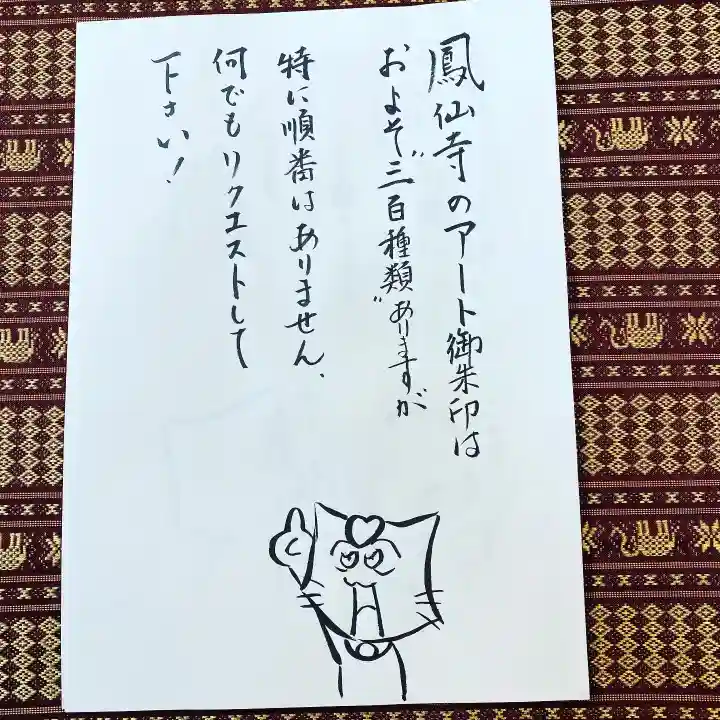 鳳仙寺のアート御朱印は
およそ”三百種類”ありますが
特に順番はありません、
何でもリクエストして
下さい！